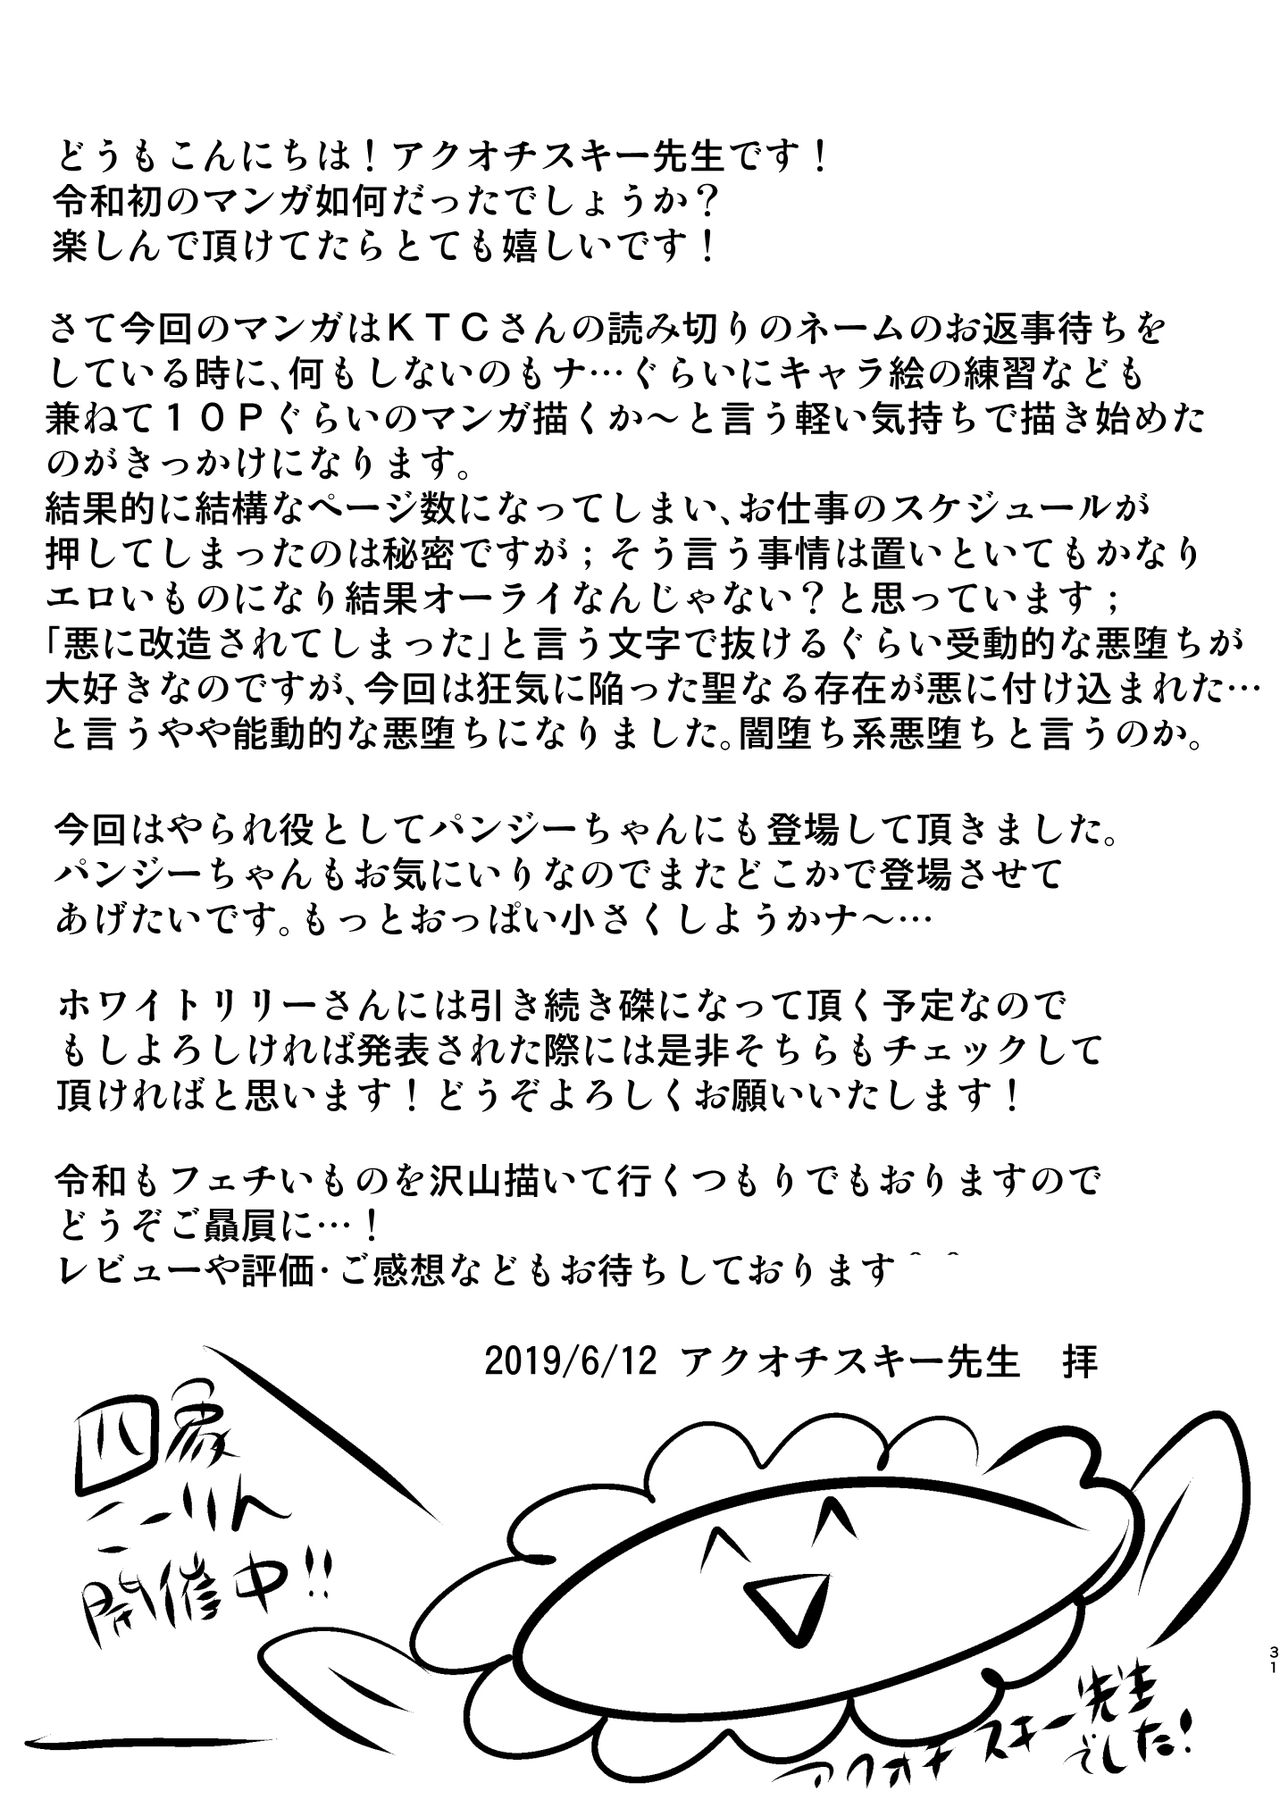 どうもこんにちは！アクオチスキー先生です！
令和初のマンガ如何だったでしょうか？
楽しんで頂けてたらとても嬉しいです！
さて今回のマンガはＫＴＣさんの読み切りのネームのお返事待ちを
している時に、何もしないのもナ…ぐらいにキャラ絵の練習なども
兼ねて１０Ｐぐらいのマンガ描くか〜と言う軽い気持ちで描き始めた
のがきっかけになります。
結果的に結構なページ数になってしまい、お仕事のスケジュールが
押してしまったのは秘密ですが；そう言う事情は置いといてもかなり
エロいものになり結果オーライなんじゃない？と思っています；
「悪に改造されてしまった」と言う文字で抜けるぐらい受動的な悪堕ちが
大好きなのですが、今回は狂気に陥った聖なる存在が悪に付け込まれた…
と言うやや能動的な悪堕ちになりました。闇堕ち系悪堕ちと言うのか。
今回はやられ役としてパンジーちゃんにも登場して頂きました。
パンジーちゃんもお気にいりなのでまたどこかで登場させて
あげたいです。もっとおっぱい小さくしようかナ〜…
ホワイトリリーさんには引き続き磔になって頂く予定なので
もしよろしければ発表された際には是非そちらもチェックして
頂ければと思います！どうぞよろしくお願いいたします！
令和もフェチいものを沢山描いて行くつもりでもおりますので
どうぞご贔屓に…！
レビューや評価・ご感想などもお待ちしております＾＾
2019/6/12 アクオチスキー先生　拝
開催中!!
アクオチスキー先生
でした!
31